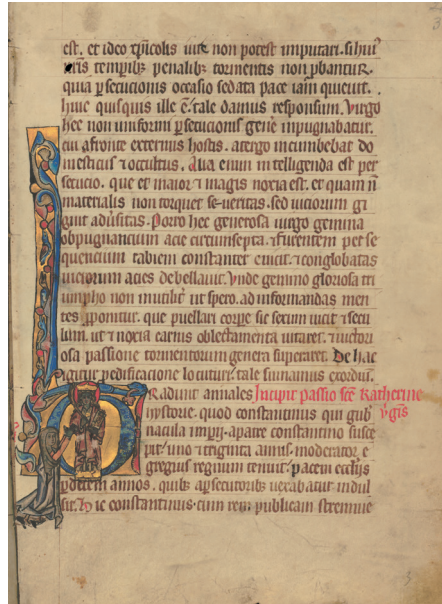 est. et ideo xpicolis iure non potest imputari. si huius
tēporis temporibꝫ penalibꝫ tormentis non ꝓbantur.
quia ꝑsecucionis occasio sedata pace iam quieuit.
huic quisquis ille ē. tale damus responsum. Uirgo
hec non uniformi ꝑsecucionis genere inpugnabatur.
cui a fronte externus hostis. a tergo incumbebat do
mesticus ⁊ occultus. Alia enim intelligenda est per
secucio. que et maior ⁊ magis noxia est. et quam ñ
materialis non torquet seueritas. sed uiciorum gi
gnit aduersitas. Porro hec generosa uirgo gemina
obpugnancium acie circumsepta. ⁊ furentem perse
quencium rabiem constanter euicit. ⁊ conglobatas
uiciorum acies debellauit. Unde gemino gloriosa tri
umpho non inutilit̉ ut spero. ad informandas men
tes ꝓponitur. que puellari corpore sic sexum uicit ⁊ secu
lum. ut ⁊ noxia carnis oblectamenta uitaret. ⁊ uictori
osa passione tormentorum genera superaret. De hac
igitur pedificatione locuturi. tale sumamus exordium.
Tradunt annales Incipit passio sce Katherine
hystorie. quod constantinus qui gub v̉ginis
nacula imperii. a patre constantino susce
pit. uno ⁊ triginta annis. moderator e
gregius regnum tenuit. pacem ecclesiis
ꝑ decem annos. quibꝫ a ꝑsecutoribꝫ uexabatur. indul
sit. Hic constantinus. cum rem publicam strennue